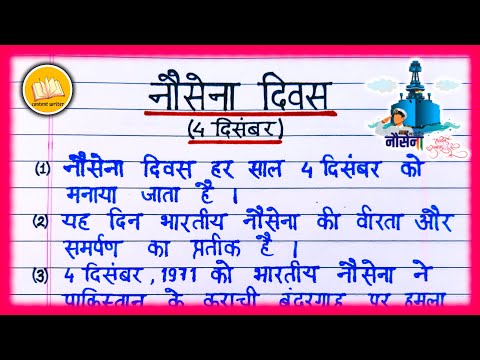 content writer
नौसेना दिवस
(4 दिसंबर)
नौसेना
(1) नौसेना दिवस हर साल 4 दिसंबर को
मनाया जाता है ।
(2) यह दिन भारतीय नौसेना की वीरता और
समर्पण का प्रतीक है ।
(3) 4 दिसंबर, 1971 को भारतीय नौसेना ने
पाकिस्तान के कराची बंदरगाह पर हमला